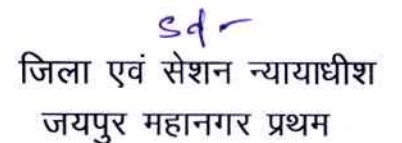 Sd-
जिला एवं सेशन न्यायाधीश
जयपुर महानगर प्रथम